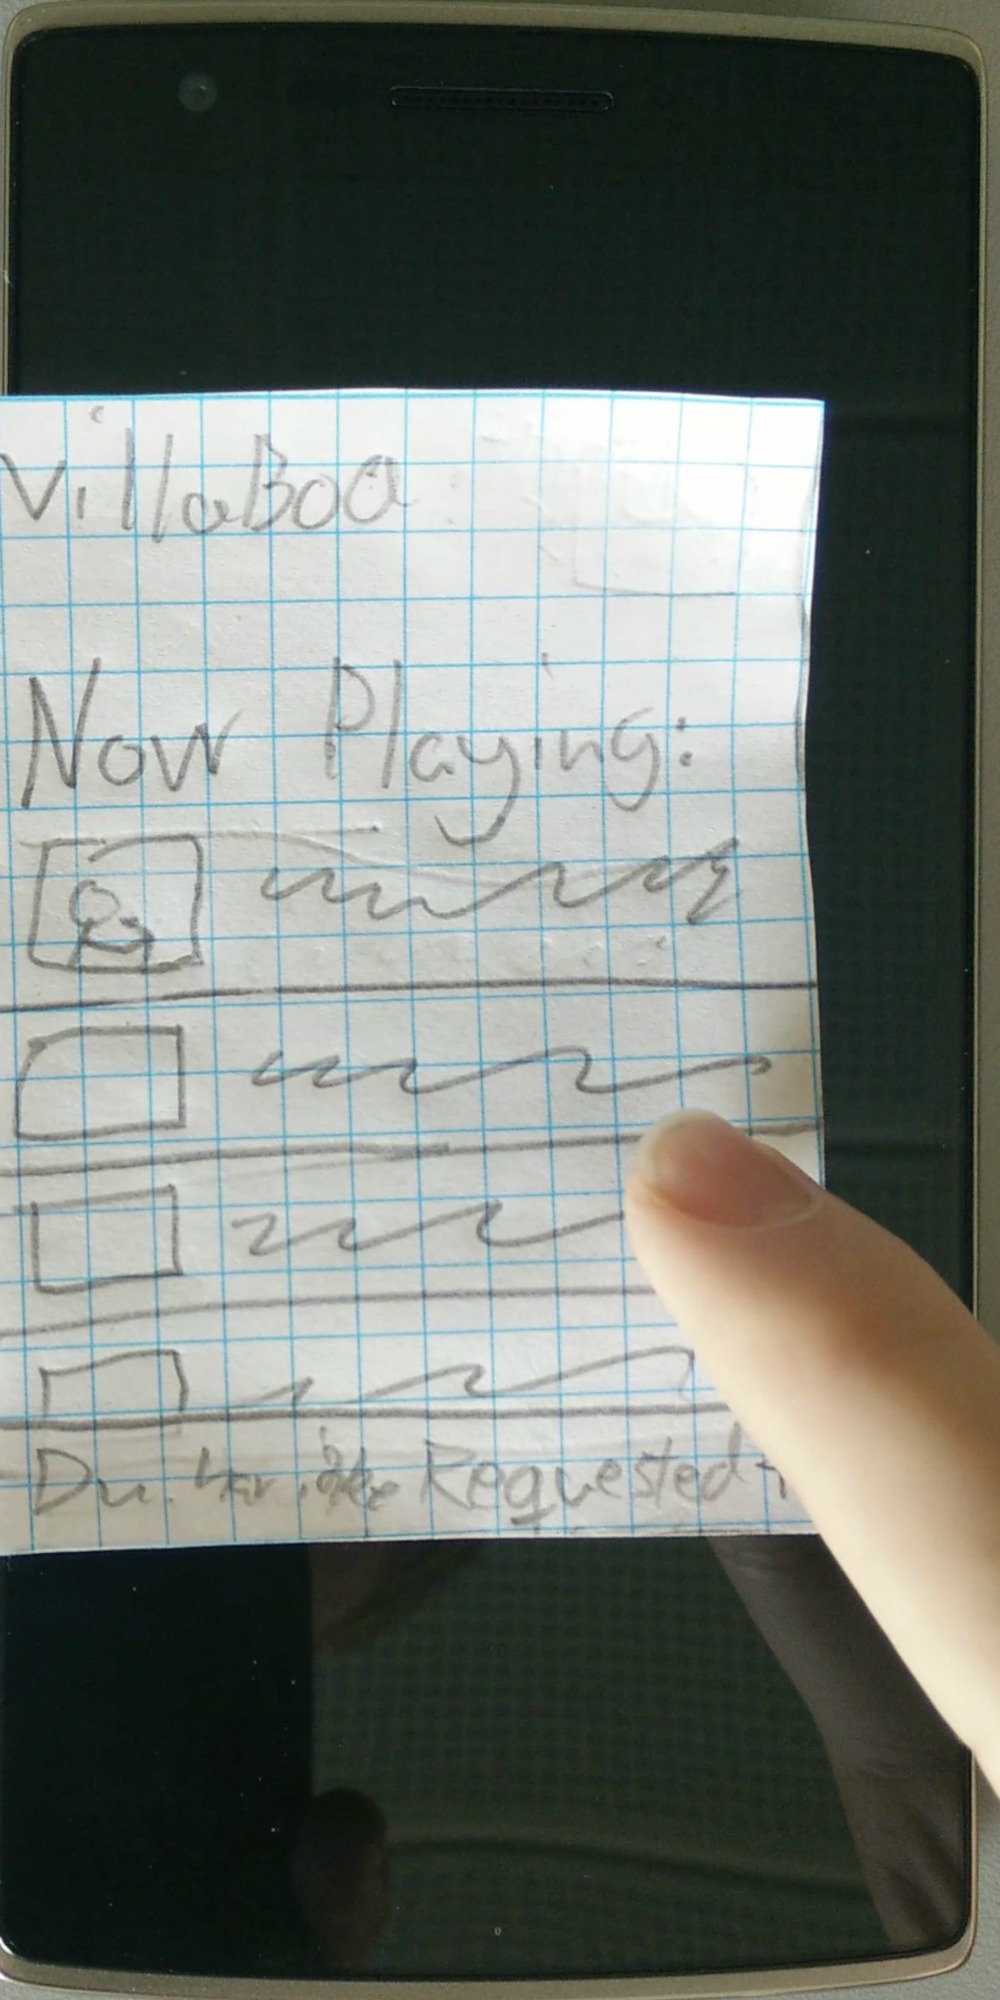 VillaBoa
Now Playing:
Du har ikke Requested